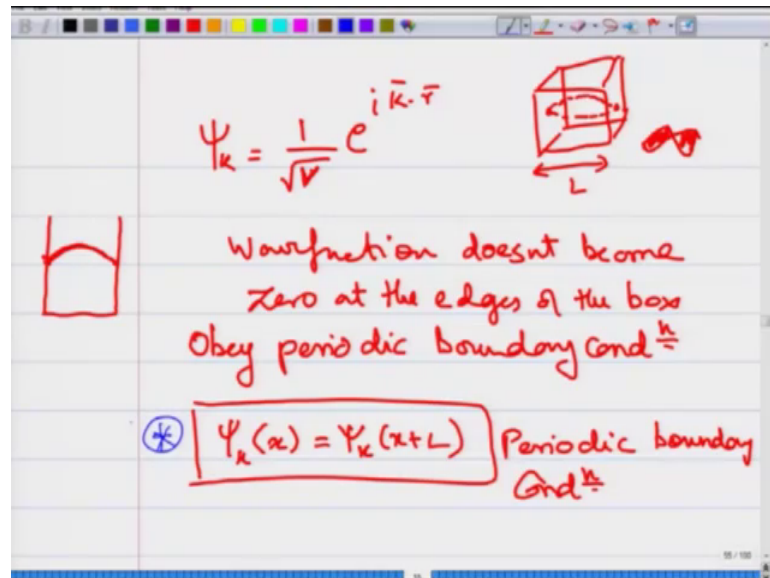 ψ_k = 1/√V e^{i k̄·r̄}
L
Wavefnction doesnt become
Zero at the edges of the box
Obey periodic boundary cond n
* ψ_k(x) = ψ_k(x+L) Periodic boundary
Cond n
55 / 100